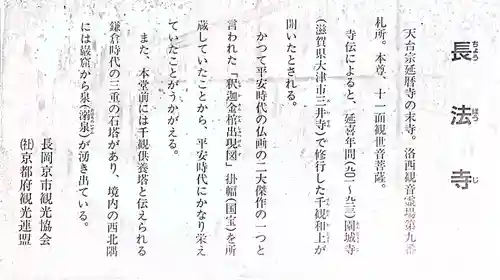 長法寺
ちょう ほう じ
天台宗延暦寺の末寺。洛西観音霊場第九番
札所。本尊、十一面観世音菩薩。
寺伝によると、延喜年間(九〇一〜九二三)園城寺
(滋賀県大津市三井寺)で修行した千観和上が
開いたとされる。
かつて平安時代の仏画の二大傑作の一つと
言われた「釈迦金棺出現図」掛幅(国宝)を所
蔵していたことから、平安時代にかなり栄え
ていたことがうかがえる。
また、本堂前には千観供養塔と伝えられる
鎌倉時代の三重の石塔があり、境内の西北隅
には巌窟から泉(溺泉)が湧き出ている。
長岡京市観光協会
(社)京都府観光連盟